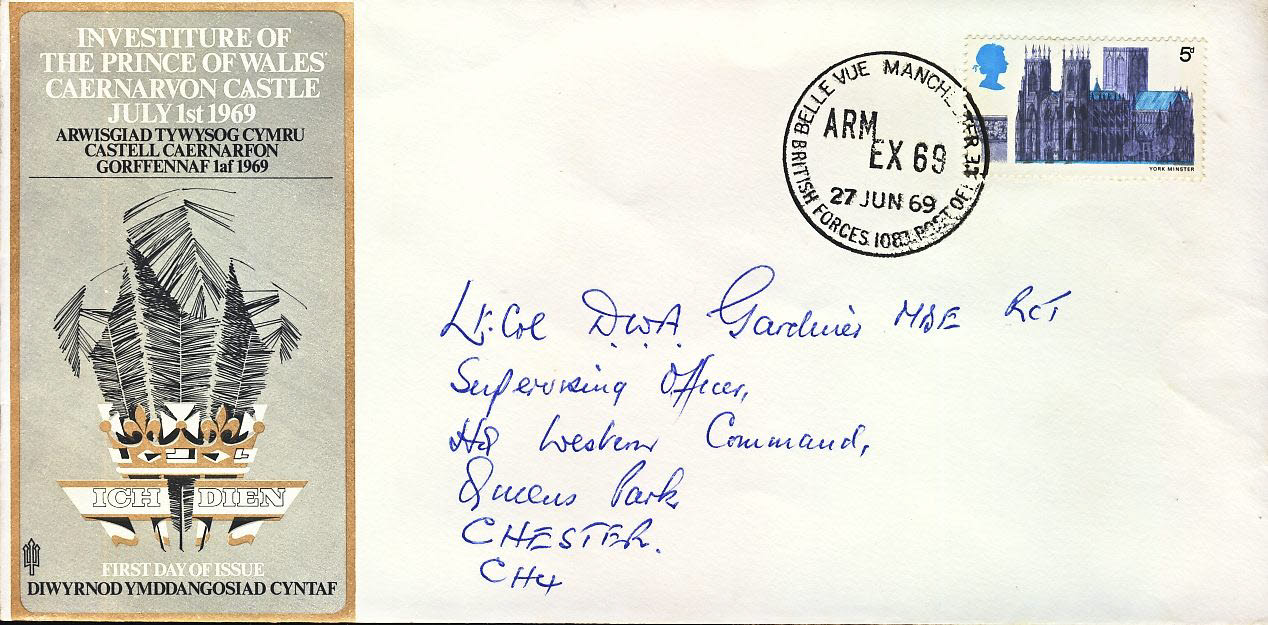 INVESTITURE OF
THE PRINCE OF WALES'
CAERNARVON CASTLE
JULY 1st 1969
ARWISGIAD TYWYSOG CYMRU
CASTELL CAERNARFON
GORFFENNAF 1af 1969
ICH DIEN
FIRST DAY OF ISSUE
DIWYRNOD YMDDANGOSIAD CYNTAF
BELLE VUE MANCHESTER
ARM
EX 69
27 JUN 69
BRITISH FORCES 1083 POST OFFICE
5d
YORK MINSTER
Lt. Col D.W.A. Gardiner MBE RCT
Supervising Officer,
HQ Western Command,
Queens Park
CHESTER.
CH4